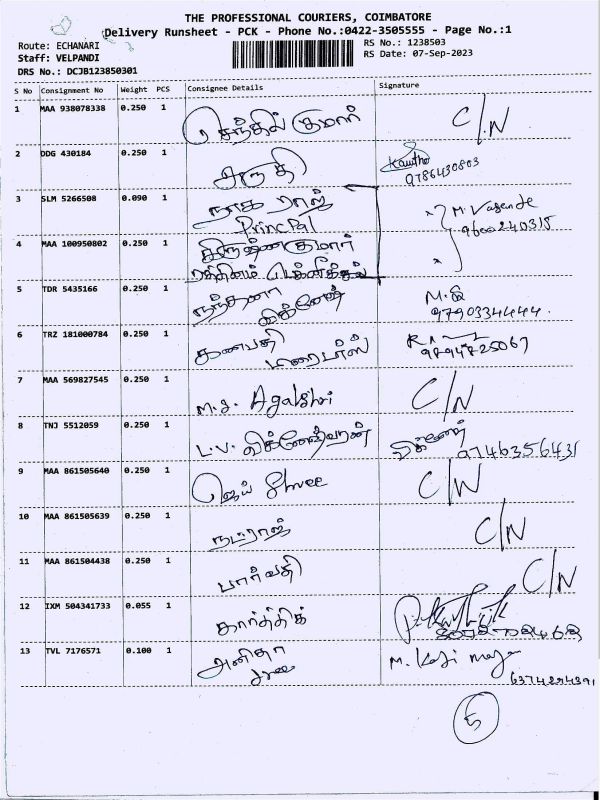 THE PROFESSIONAL COURIERS, COIMBATORE
Delivery Runsheet - PCK - Phone No.:0422-3505555 - Page No.:1
Route: ECHANARI
RS No.: 1238503
Staff: VELPANDI
RS Date: 07-Sep-2023
DRS No.: DCJB123850301
S No Consignment No Weight PCS Consignee Details Signature
1 MAA 938078338 0.250 1 செந்தில் குமார் C/N
2 DDG 430184 0.250 1
9786430803
3 SLM 5266508 0.090 1 நாக ராஜ்
Principal
M. Vasende
9600240315
4 MAA 100950802 0.250 1 கிருஷ்ணகுமார்
5 TDR 5435166 0.250 1 நந்தனா
விக்னேஷ்
9790334444.
6 TRZ 181000784 0.250 1 கணபதி
9894725067
7 MAA 569827545 0.250 1 M.S. Agalshri C/N
8 TNJ 5512059 0.250 1 L.V. விக்னேஷ்வரன்
9746356431
9 MAA 861505640 0.250 1 ஜெய் Shree C/N
10 MAA 861505639 0.250 1 நடராஜ் C/N
11 MAA 861504438 0.250 1 பார்வதி C/N
12 IXM 504341733 0.055 1 கார்த்திக்
13 TVL 7176571 0.100 1 அனிதா
Jree
M.
6374294391
5